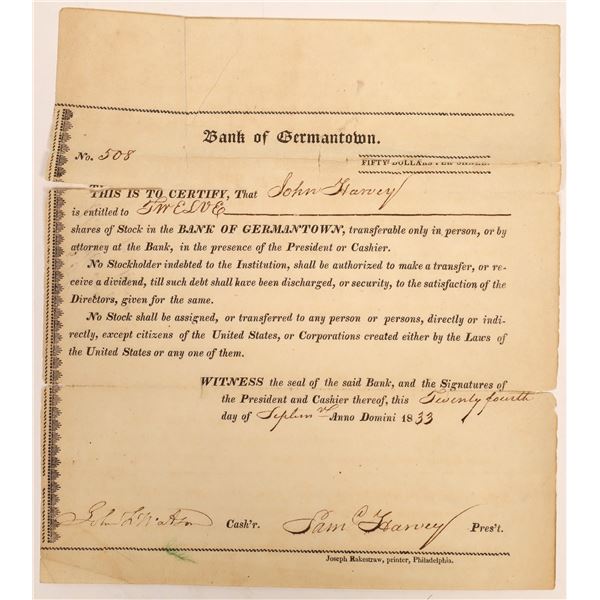 Bank of Germantown.
No. 508
FIFTY DOLLARS PER SHARE.
THIS IS TO CERTIFY, That John Harvey
is entitled to TWELVE
shares of Stock in the BANK OF GERMANTOWN, transferable only in person, or by
attorney at the Bank, in the presence of the President or Cashier.
No Stockholder indebted to the Institution, shall be authorized to make a transfer, or re-
ceive a dividend, till such debt shall have been discharged, or security, to the satisfaction of the
Directors, given for the same.
No Stock shall be assigned, or transferred to any person or persons, directly or indi-
rectly, except citizens of the United States, or Corporations created either by the Laws of
the United States or any one of them.
WITNESS the seal of the said Bank, and the Signatures of
the President and Cashier thereof, this Twenty fourth
day of Septem<sup>r</sup> Anno Domini 1833
John F Watson Cash'r. Sam<sup>l</sup> Harvey Pres't.
Joseph Rakestraw, printer, Philadelphia.